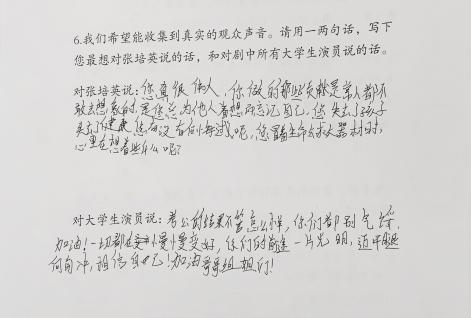 6.我们希望能收集到真实的观众声音。请用一两句话，写下
您最想对张培英说的话，和对剧中所有大学生演员说的话。
对张培英说：您真很伟人，你做的那些贡献是常人都不
敢去想象的，是您总为他人着想而忘记自己，您失去了孩子
失去了健康，您有没有后悔过呢，您冒着生命去救火器材时，
心里在想着些什么呢？
对大学生演员说：考公的结果不管怎么样，你们都别气馁，
加油！一切都在慢慢变好，你们的前途一片光明，
向前冲，相信自己！加油哥哥姐姐们！